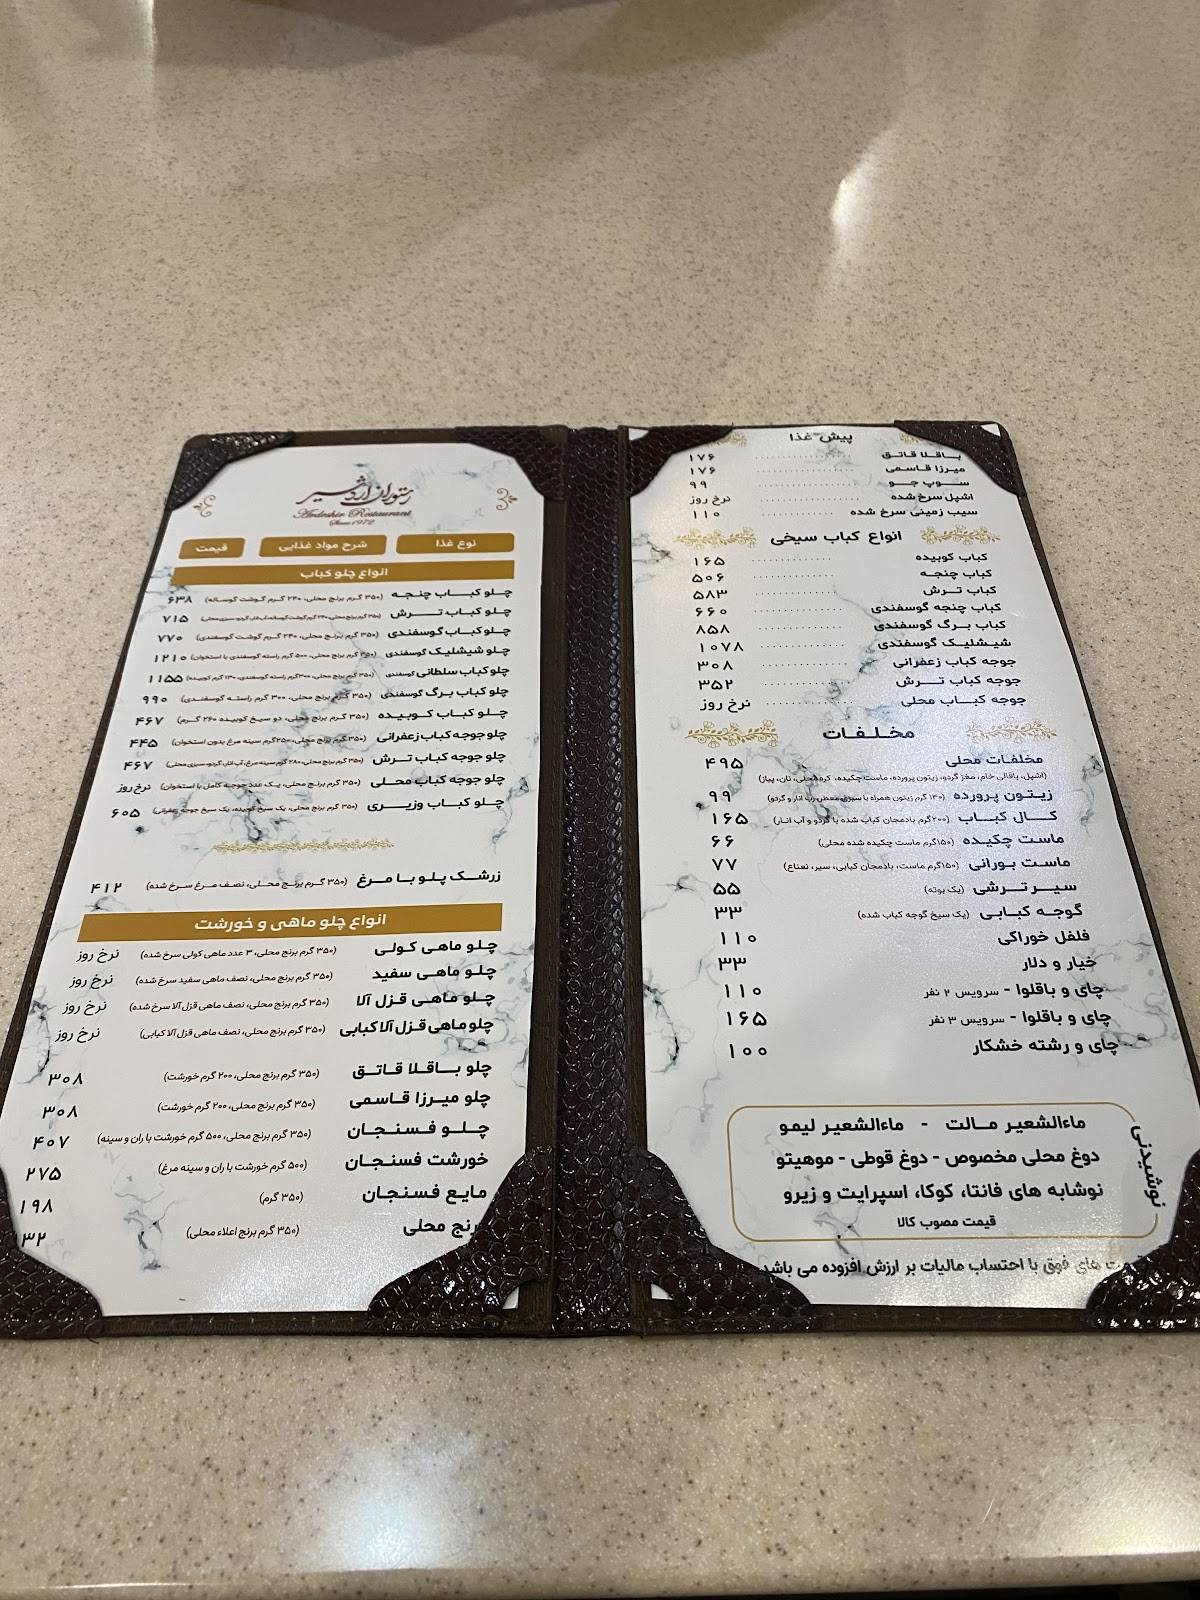 رستوران اردشیر
Ardeshir Restaurant
Since 1972
نوع غذا شرح مواد غذایی قیمت
انواع چلو کباب
چلو کباب چنجه (۳۵۰ گرم برنج محلی، ۲۴۰ گرم گوشت گوساله) ۶۳۸
چلو کباب ترش ۷۱۵
چلو کباب گوسفندی (۳۵۰ گرم برنج محلی، ۲۴۰ گرم گوشت گوسفندی) ۷۷۰
چلو شیشلیک گوسفندی (۳۵۰ گرم برنج محلی، ۵۰۰ گرم راسته گوسفندی با استخوان) ۱۲۱۰
چلو کباب سلطانی گوسفندی (۳۵۰ گرم برنج محلی، ۳۰۰گرم راسته گوسفندی، ۱۳۰ گرم کوبیده) ۱۱۵۵
چلو کباب برگ گوسفندی (۳۵۰ گرم برنج محلی، ۳۰۰ گرم راسته گوسفندی) ۹۹۰
چلو کباب کوبیده (۳۵۰ گرم برنج محلی، دو سیخ کوبیده ۲۶۰ گرم) ۴۶۷
چلو جوجه کباب زعفرانی (۳۵۰ گرم برنج محلی، ۲۵۰گرم سینه مرغ بدون استخوان) ۴۴۵
چلو جوجه کباب ترش (۳۵۰ گرم برنج محلی، ۲۸۰ گرم سینه مرغ، آب انار، گردو، سبزی محلی) ۴۶۷
چلو جوجه کباب محلی (۳۵۰ گرم برنج محلی، یک عدد جوجه کامل با استخوان) نرخ روز
چلو کباب وزیری (۳۵۰ گرم برنج محلی، یک سیخ کوبیده، یک سیخ جوجه زعفرانی) ۶۰۵
زرشک پلو با مرغ (۳۵۰ گرم برنج محلی، نصف مرغ سرخ شده) ۴۱۲
انواع چلو ماهی و خورشت
چلو ماهی کولی (۳۵۰ گرم برنج محلی، ۳ عدد ماهی کولی سرخ شده) نرخ روز
چلو ماهی سفید (۳۵۰ گرم برنج محلی، نصف ماهی سفید سرخ شده) نرخ روز
چلو ماهی قزل آلا (۳۵۰ گرم برنج محلی، نصف ماهی قزل آلا سرخ شده) نرخ روز
چلو ماهی قزل آلا کبابی (۳۵۰ گرم برنج محلی، نصف ماهی قزل آلا کبابی) نرخ روز
چلو باقلا قاتق (۳۵۰ گرم برنج محلی، ۲۰۰ گرم خورشت) ۳۰۸
چلو میرزا قاسمی (۳۵۰ گرم برنج محلی، ۲۰۰ گرم خورشت) ۳۰۸
چلو فسنجان (۳۵۰ گرم برنج محلی، ۵۰۰ گرم خورشت با ران و سینه) ۴۰۷
خورشت فسنجان (۵۰۰ گرم خورشت با ران و سینه مرغ) ۲۷۵
مایع فسنجان (۳۵۰ گرم) ۱۹۸
برنج محلی (۳۵۰ گرم برنج اعلاء محلی) ۳۲
پیش غذا
باقلا قاتق ۱۷۶
میرزا قاسمی ۱۷۶
سوپ جو ۹۹
اشپل سرخ شده نرخ روز
سیب زمینی سرخ شده ۱۱۰
انواع کباب سیخی
کباب کوبیده ۱۶۵
کباب چنجه ۵۰۶
کباب ترش ۵۸۳
کباب چنجه گوسفندی ۶۶۰
کباب برگ گوسفندی ۸۵۸
شیشلیک گوسفندی ۱۰۷۸
جوجه کباب زعفرانی ۳۰۸
جوجه کباب ترش ۳۵۲
جوجه کباب محلی نرخ روز
مخلفات
مخلفات محلی ۴۹۵
(اشپل، باقالی خام، مغز گردو، زیتون پرورده، ماست چکیده، کره محلی، نان، پیاز)
زیتون پرورده (۱۳۰ گرم زیتون همراه با سبزی معطر، رب انار و گردو) ۹۹
کال کباب (۲۰۰گرم بادمجان کباب شده با گردو و آب انار) ۱۶۵
ماست چکیده (۱۵۰گرم ماست چکیده شده محلی) ۶۶
ماست بورانی (۱۵۰گرم ماست، بادمجان کبابی، سیر، نعناع) ۷۷
سیر ترشی (یک بوته) ۵۵
گوجه کبابی (یک سیخ گوجه کباب شده) ۳۳
فلفل خوراکی ۱۱۰
خیار و دلار ۳۳
چای و باقلوا - سرویس ۲ نفر ۱۱۰
چای و باقلوا - سرویس ۳ نفر ۱۶۵
چای و رشته خشکار ۱۰۰
نوشیدنی
ماءالشعیر مالت - ماءالشعیر لیمو
دوغ محلی مخصوص - دوغ قوطی - موهیتو
نوشابه های فانتا، کوکا، اسپرایت و زیرو
قیمت مصوب کالا
های فوق با احتساب مالیات بر ارزش افزوده می باشد